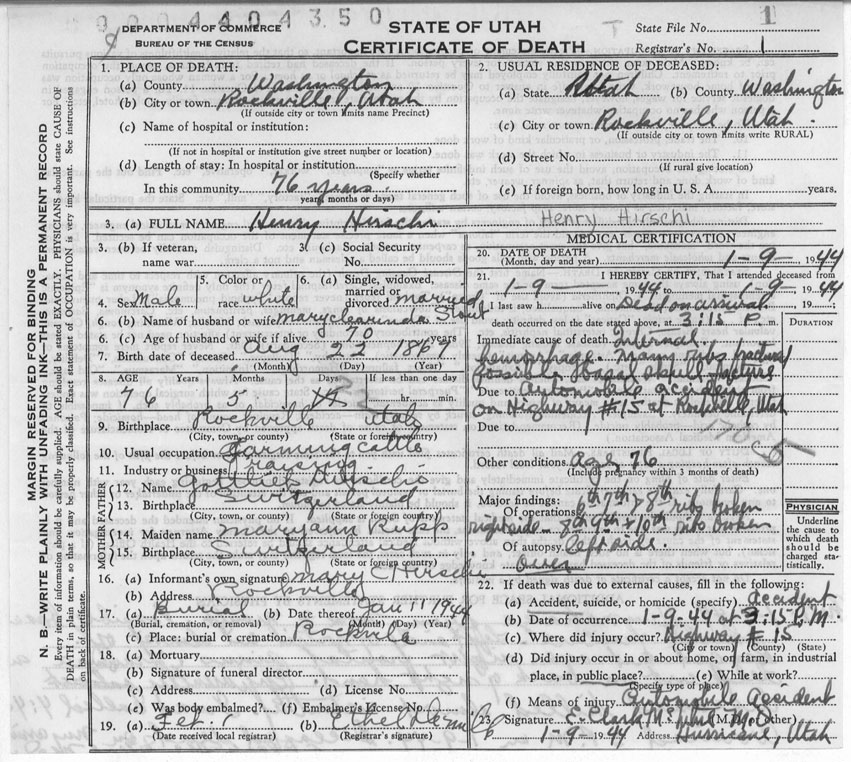 0004404350
9
DEPARTMENT OF COMMERCE
BUREAU OF THE CENSUS
STATE OF UTAH
CERTIFICATE OF DEATH
State File No. 1
Registrar's No. 1
MARGIN RESERVED FOR BINDING
N. B.—WRITE PLAINLY WITH UNFADING INK—THIS IS A PERMANENT RECORD
Every item of information should be carefully supplied. AGE should be stated EXACTLY. PHYSICIANS should state CAUSE OF
DEATH in plain terms, so that it may be properly classified. Exact statement of OCCUPATION is very important. See instructions
on back of certificate.
1. PLACE OF DEATH:
(a) County Washington
(b) City or town Rockville, Utah
(If outside city or town limits name Precinct)
(c) Name of hospital or institution:
(If not in hospital or institution give street number or location)
(d) Length of stay: In hospital or institution
(Specify whether
In this community 76 years.
years, months or days)
2. USUAL RESIDENCE OF DECEASED:
(a) State Utah (b) County Washington
(c) City or town Rockville, Utah.
(If outside city or town limits write RURAL)
(d) Street No.
(If rural give location)
(e) If foreign born, how long in U. S. A. years.
3. (a) FULL NAME Henry Hirschi Henry Hirschi
3. (b) If veteran,
name war
3. (c) Social Security
No.
4. Sex Male
5. Color or
race white
6. (a) Single, widowed,
married or
divorced married
6. (b) Name of husband or wife mary clearinda Stout
6. (c) Age of husband or wife if alive 70 years
7. Birth date of deceased Aug 22 1867
(Month) (Day) (Year)
8. AGE Years Months Days If less than one day
76 5 hr. min.
9. Birthplace Rockville Utah
(City, town, or county) (State or foreign country)
10. Usual occupation farming cattle
11. Industry or business raising
MOTHER FATHER
12. Name Gottlieb Hirschi
13. Birthplace Switzerland
(City, town, or county) (State or foreign country)
14. Maiden name Maryann Rupp
15. Birthplace Switzerland
(City, town, or county) (State or foreign country)
16. (a) Informant's own signature Mary C Hirschi
(b) Address Rockville
17. (a) Burial (b) Date thereof Jan 11 1944
(Burial, cremation, or removal) (Month) (Day) (Year)
(c) Place: burial or cremation Rockville
18. (a) Mortuary
(b) Signature of funeral director
(c) Address (d) License No.
(e) Was body embalmed? (f) Embalmer's License No.
19. (a) Feb. 1 (b) Ethel
(Date received local registrar) (Registrar's signature)
MEDICAL CERTIFICATION
20. DATE OF DEATH
(Month, day and year) 1-9- 1944
21. I HEREBY CERTIFY, That I attended deceased from
1-9- 1944 to 1-9- 1944
I last saw h alive on Dead on arrival 19
death occurred on the date stated above, at 3:15 P. m.
DURATION
Immediate cause of death Internal
hemorrhage. Many ribs fractured
possible basal skull fracture
Due to Automobile accident
on Highway #15 at Rockville, Utah
Due to
170 c
5
Other conditions age 76
(Include pregnancy within 3 months of death)
Major findings:
Of operations 6th 7th & 8th ribs broken
right side - 8th 9th & 10th ribs broken
Of autopsy left side.
PHYSICIAN
Underline
the cause to
which death
should be
charged sta-
tistically.
22. If death was due to external causes, fill in the following:
(a) Accident, suicide, or homicide (specify) accident
(b) Date of occurrence 1-9-44 at 3:15 P.M.
(c) Where did injury occur? Highway #15
(City or town) (County) (State)
(d) Did injury occur in or about home, on farm, in industrial
place, in public place? (e) While at work?
(Specify type of place)
(f) Means of injury Automobile accident
23. Signature E. Clark (M. D. or other)
1-9- 1944 Address Hurricane, Utah